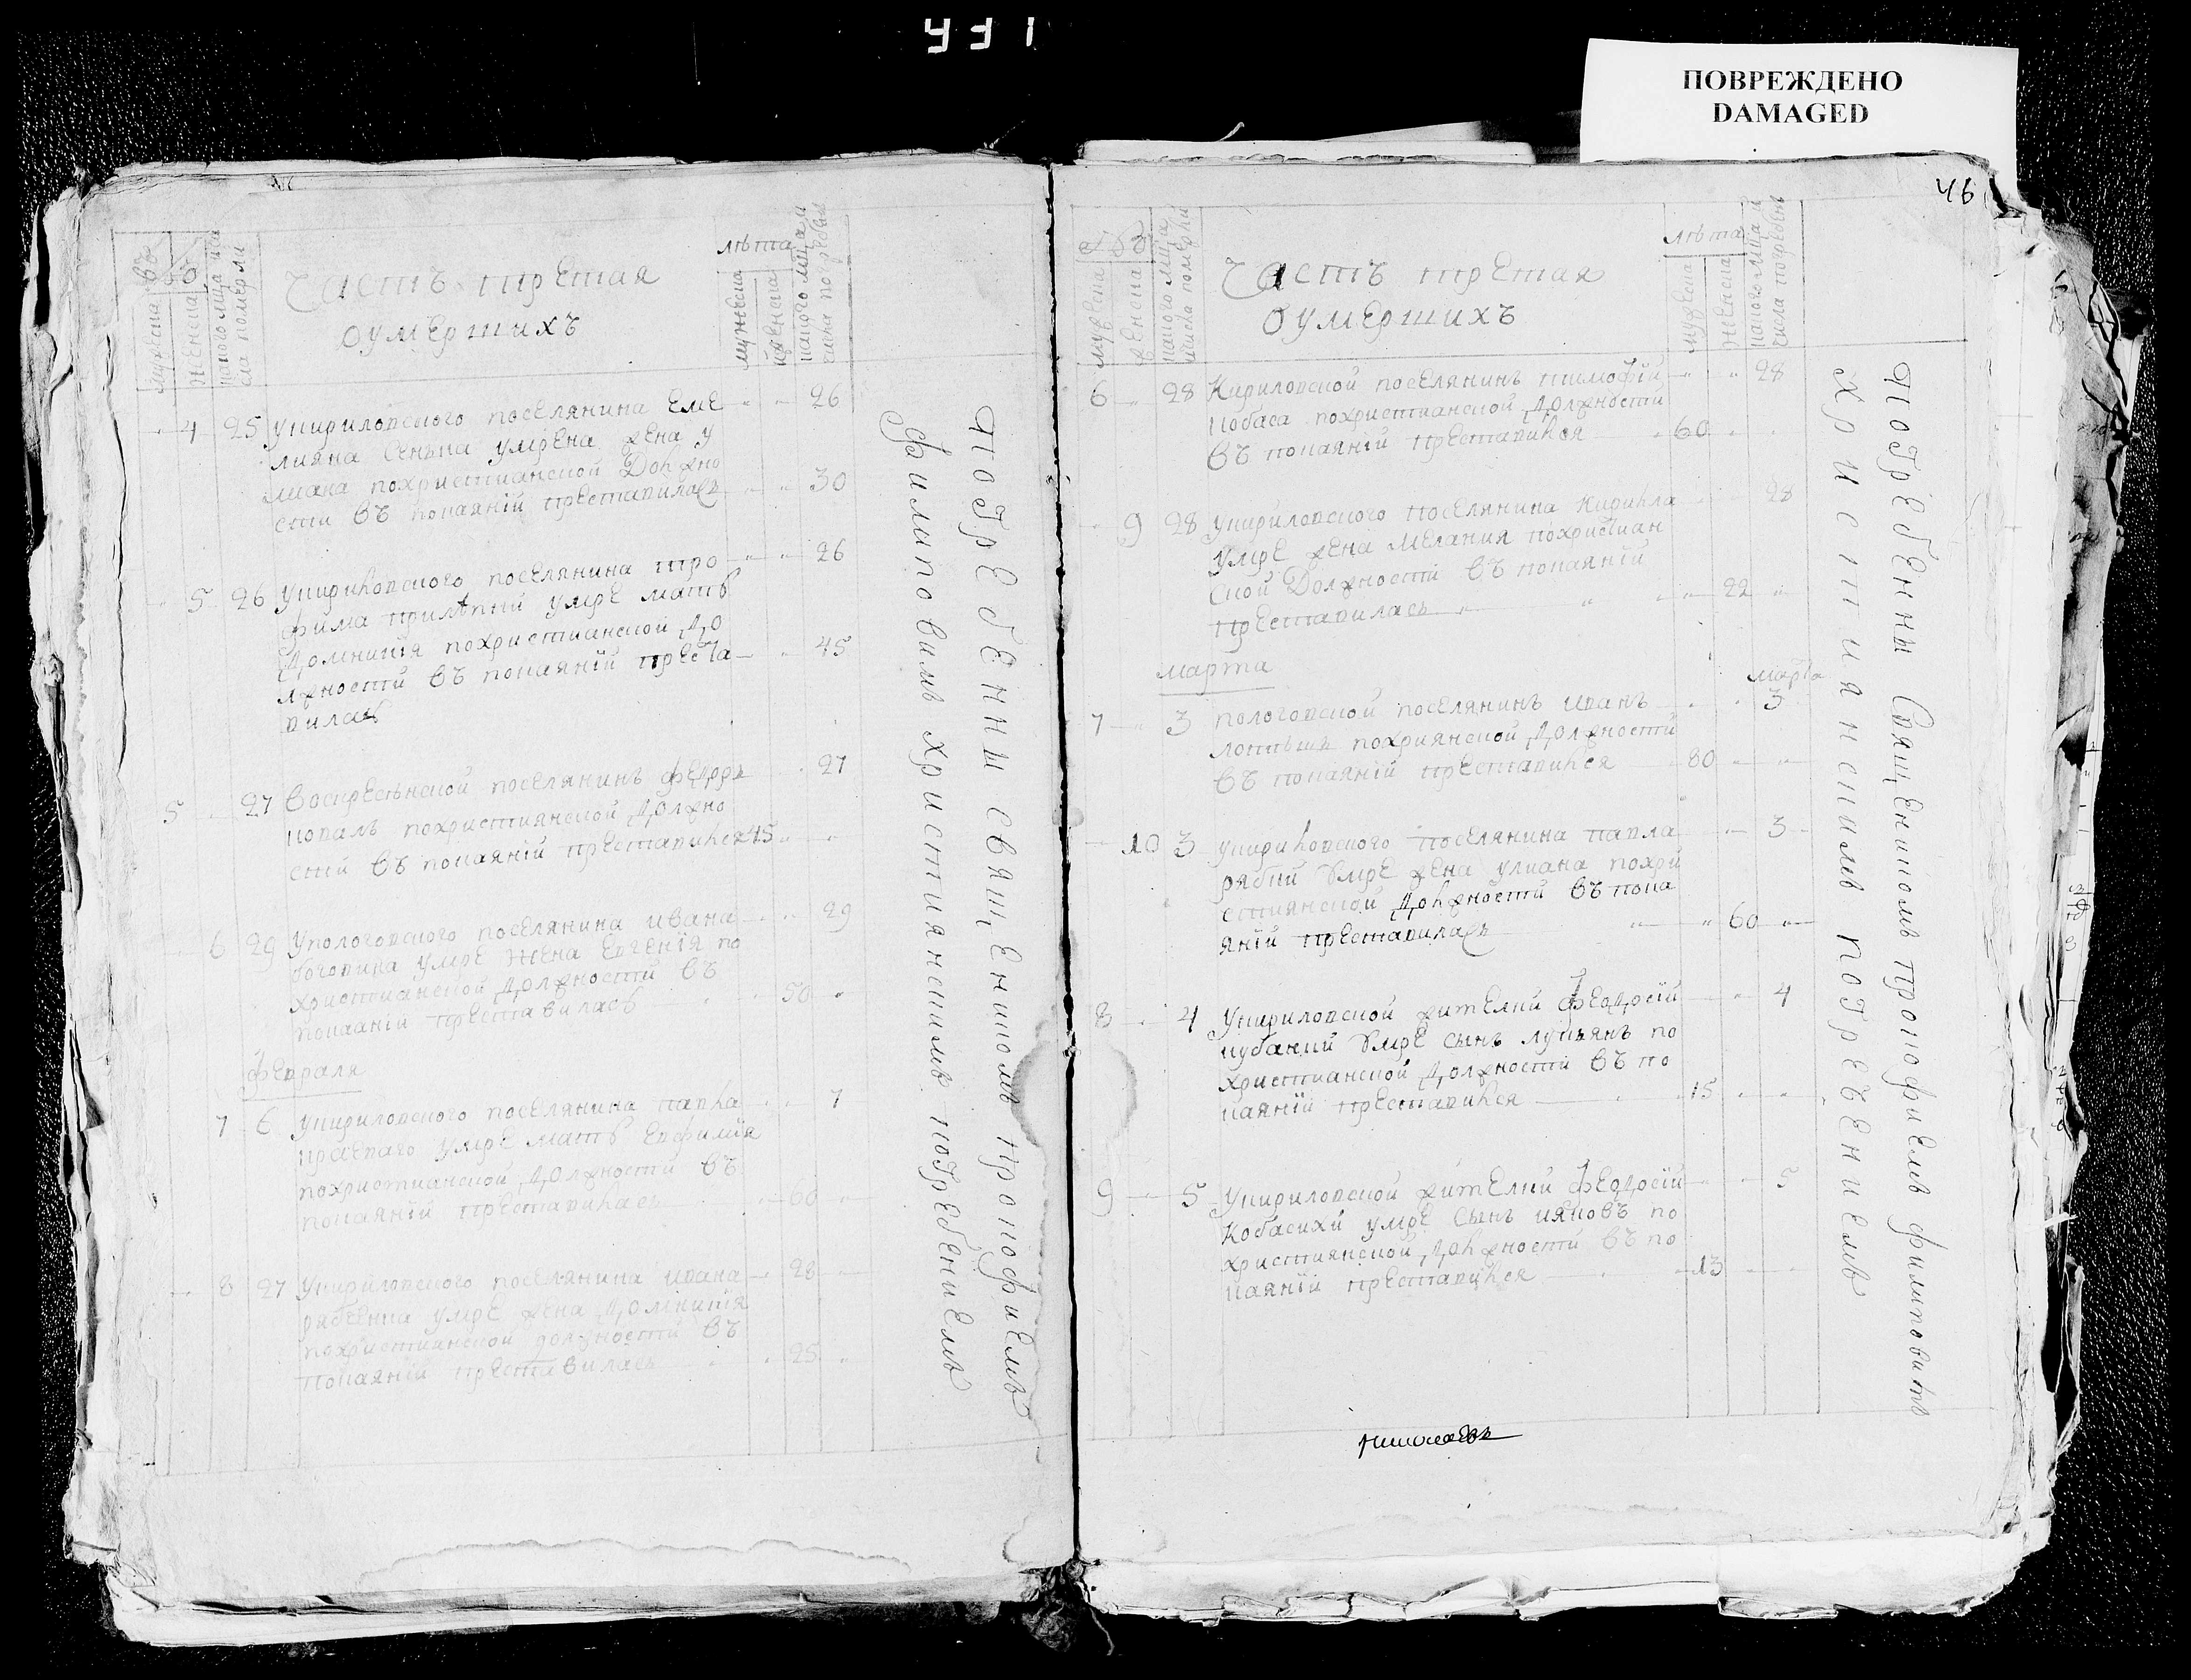 ПОВРЕЖДЕНО
DAMAGED
46
Часть третая
оумершихъ
лѣта
мужеска
женска
4 25 Укириловского поселянина Еме 26
лияна Сенька умрена жена у
лиана похристианской Должно
сти въ покаяніи преставилась 30
5 26 Укириловского поселянина тро 26
фима прилѣпки умре мать
Домникія похристианской до
лжности въ покаяніи преста 45
вилась
5 27 Воскресѣнской поселянинъ федоръ 27
ковалъ похристиянской должно
сти въ покаяніи преставился 45
6 29 Упологовского поселянина ивана 29
умре жена Евгенія по
христианской должности въ
покаяніи преставилась 50
февраля
7 6 Укириловского поселянина павла 7
умре мать Евфимія
похристианской должности въ
покаяніи преставилась 60
8 27 Укириловского поселянина ивана 28
рябенка умре жена домникія
похристианской должности въ
покаяніи преставилась 25
погребенны священникомъ прокофиемъ
филиповимъ християнскимъ погребениемъ
Часть третая
оумершихъ
лѣта
мужеска
женска
6 28 Кириловской поселянинъ тимофій 28
кобаса похристианской должности
въ покаяніи преставился 60
9 28 Укириловского поселянина Кирилла 28
умре жена Мелания похристиан
ской Должности въ покаяніи
преставилась 22
марта
марта
7 3 пологовской поселянинъ иванъ 3
похриянской должности
въ покаяніи преставился 80
10 3 Укириловского поселянина павла 3
рябки умре жена улиана похри
стиянской должности въ пока
яніи преставилась 60
8 4 Укириловской жителки феодосіи 4
кубански умре сынъ лукьянъ по
христианской должности въ по
каяніи преставился 15
9 5 Укириловской жителки феодосіи 5
Кобасихи умре сынъ яковъ по
християнской должности въ по
каяніи преставился 13
погребенны Священникомъ прокофиемъ филиповимъ
християнскимъ погребениемъ